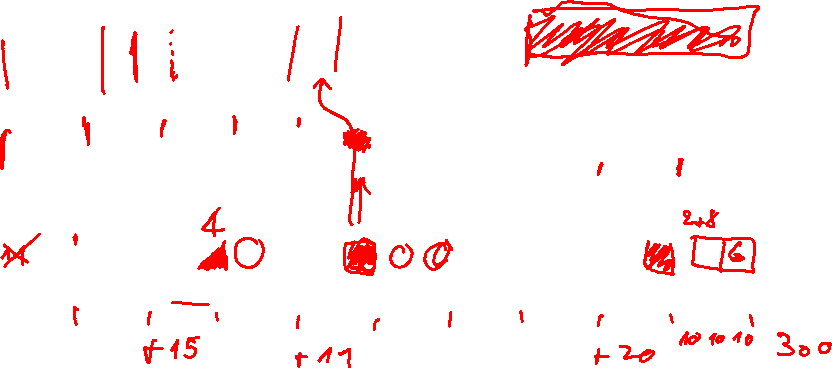 4
2+8
6
+15 +11 +20 10 10 10 300